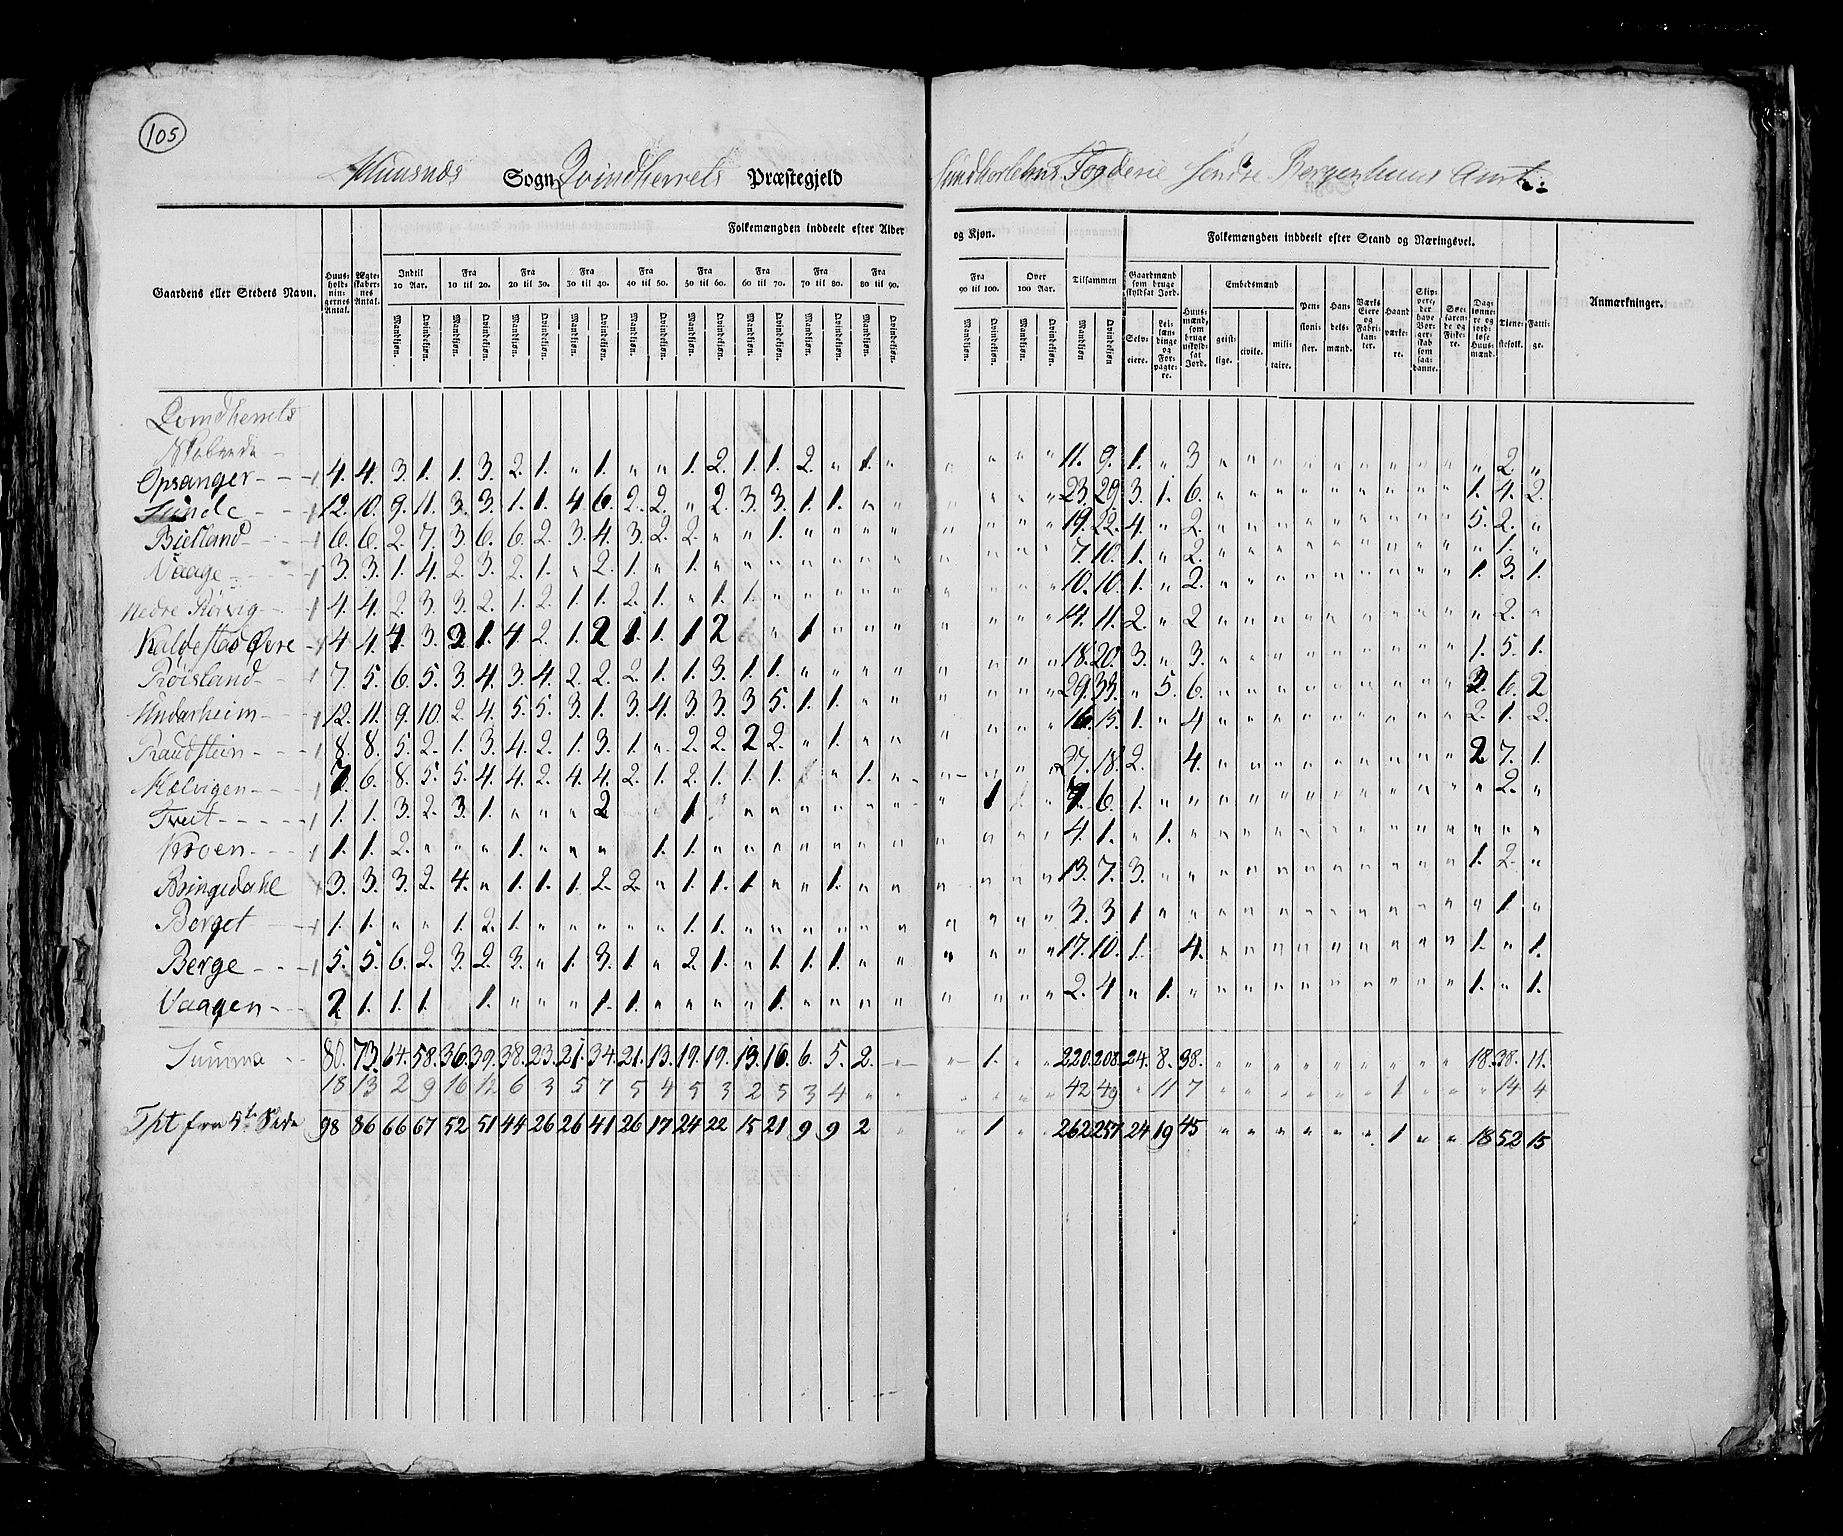 105
Huusnæs Sogn Qvindherrets Præstegjeld Søndhorlehns Fogderie Søndre Bergenhuus Amt:
Gaardens eller Steders Navn.
Huusholdningernes Antal.
Ægteskabernes Antal.
Folkemængden inddeelt efter Alder og Kjøn.
Indtil 10 Aar. Fra 10 til 20. Fra 20 til 30. Fra 30 til 40. Fra 40 til 50. Fra 50 til 60. Fra 60 til 70. Fra 70 til 80. Fra 80 til 90. Fra 90 til 100. Over 100 Aar. Tilsammen
Mandkjøn. Qvindekjøn.
Folkemængden inddeelt efter Stand og Næringsvei.
Gaardmænd som bruge skyldsat Jord.
Selveiere.
Leilændinge og Forpagtere.
Huusmænd, som bruge uskyldsat Jord.
Embedsmænd
geistlige. civile. militaire.
Pensionister.
Handelsmænd.
Værks Eiere og Fabrikanter.
Haandværkere.
Skippere, der have Borgerskab som saadanne.
Søefarende og Fiskere.
Daglønnere og jordløse Huusmænd.
Tienestefolk.
Fattige.
Anmærkninger.
Qvindherrets
Opsanger 4. 4. 3. 1. 1. 3. 2. 1. " 1. " " 1. 2. 1. 1. 2. " 1. " " " " " 11. 9. 1. " 3 " " " " " " " " " " 2 "
Sunde 12. 10. 9. 11. 3. 3. 1. 1. 4 6. 2. 2. " 2. 3. 3. 1. 1. " " " " " " 23. 29. 3. 1. 6. " " " " " " " " " 1. 4. 2.
Bielland 6. 6. 2. 7. 3. 6. 6. 2. 3. 4. 3. 2. 2. " " 1. " " " " " " " " 19. 22. 4. " 2. " " " " " " " " " 5. 2. "
Vaage 3. 3. 1. 4. 2. 3. 2. 1. " 2. 1. " 1. " " " " " " " " " " " 7. 10. 1. " 2. " " " " " " " " " " 1. "
Nedre Rørvig 4. 4. 2. 3. 3. 2. 1. 2. 1. 1. 2. 1. " 1. 1. " " " " " " " " " 10. 10. 1. " 2. " " " " " " " " " 1. 3. 1.
Kaldestad Øvre 4 4. 4. 3. 2 1. 4 2. 1. 2 1. 1. 1 2 " 1 " " " " " " " 14. 11. 2. " 2 " " " " " " " " " " 2. "
Røisland 7. 5. 6. 5. 3. 4. 3. 4. 2. 2. 2. 1. 1. 3. 1. 1. " " " " " " " " 18. 20. 3. " 3. " " " " " " " " " 1. 5. 1.
Undarheim 12. 11. 9. 10. 2. 4. 5. 5. 3. 1. 3. 4. 3. 3. 3 5. 1. 1. " " " " " " 29. 33. " 5. 6. " " " " " " " " " 2. 6. 2
Raudstein 8. 8. 5. 2. 1. 3. 4. 2. 1. 3. 1. " 2. 2. 2 2. " 1. " " " " " " 16. 15. 1. " 4 " " " " " " " " " 2. 1. 2.
Mælvigen 7. 6. 8. 5. 5. 4. 4. 2. 4. 4. 2. 1. 2. 1. 1. 1. " 1. " " " " " 27. 18. 2. 4. " " " " " " " " " 2 7. 1.
Tveit 1. 1. 3. 2. 3. 1. " " " 2 1 " " " " " " " 1 " 7. 6. 1. " " " " " " " " " " " " 2. "
Kroen 1. 1. 2. " " " 1. " " " 1. 1. " " " " " " " " " " " 4. 1. " 1. " " " " " " " " " " " " "
Bringedahl 3. 3. 3. 2. 4. " 1. 1. 1. 2. 2. " 1. 1. 1. " " 1. " " " " " " 13. 7. 3. " " " " " " " " " " 1. 2. "
Berget 1. 1. " " 1. 2. 1. " " " " " 1. 1. " " " " " " " " " " 3. 3 1. " " " " " " " " " " " " 1. "
Berge 5. 5. 6. 2. 3. 2. 3. " 1. 3. 1. " 2. 1. " 1. 1. 1. " " " " " " 17. 10. 1. 4. " " " " " " " " " 1. " 1.
Vaagen 2 1. 1. 1. 1. " " " 1. 1. " " " " 1. " " " " " " " " 2. 4 " 1. " " " " " " " " " " 1. " 1.
Summa 80. 73. 64. 58. 36. 39. 38. 23. 21. 34. 21. 13. 19. 19. 13. 16. 6. 5. 2. " " 1. " " 220. 208. 24. 8. 38. " " " " " " " " " 18. 38. 11.
18 13 2 9 16 12 6 3 5 7 5 4 5 3 2 5 3 4 " " " " " " 42 49 " 11 7 " " " " " " 1 " " " 14 4
Tpt fra 5te Side 98 86 66 67 52 51 44 26 26 41 26 17 24 22 15 21 9 9 2 " " 1 " " 262 257 24 19 45 " " " " " " 1 " " 18 52 15